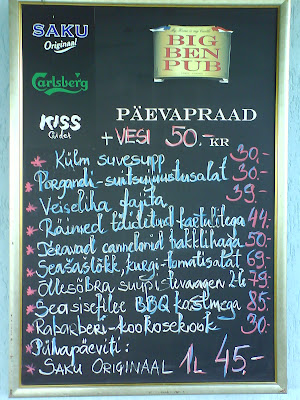 SAKU
Originaal
BIG
BEN
PUB
Carlsberg
KISS
Cider
PÄEVAPRAAD
+ VESI 50.- KR
* Külm suvesupp 30.-
* Porgandi-suitsujuustusalat 30.-
* Veiseliha fajita 39.-
* Räimed täidetud kartulitega 44.-
* Teravad cannelonid hakklihaga 50.-
* Seašašlõkk, kurgi-tomatisalat 69.-
* Õllesõbra suupistevaagen 2-le 79.-
* Seasisefilee BBQ kastmega 85.-
* Rabarberi-kookosekook 30.-
* Pühapäeviti:
* SAKU ORIGINAAL 1L 45.-